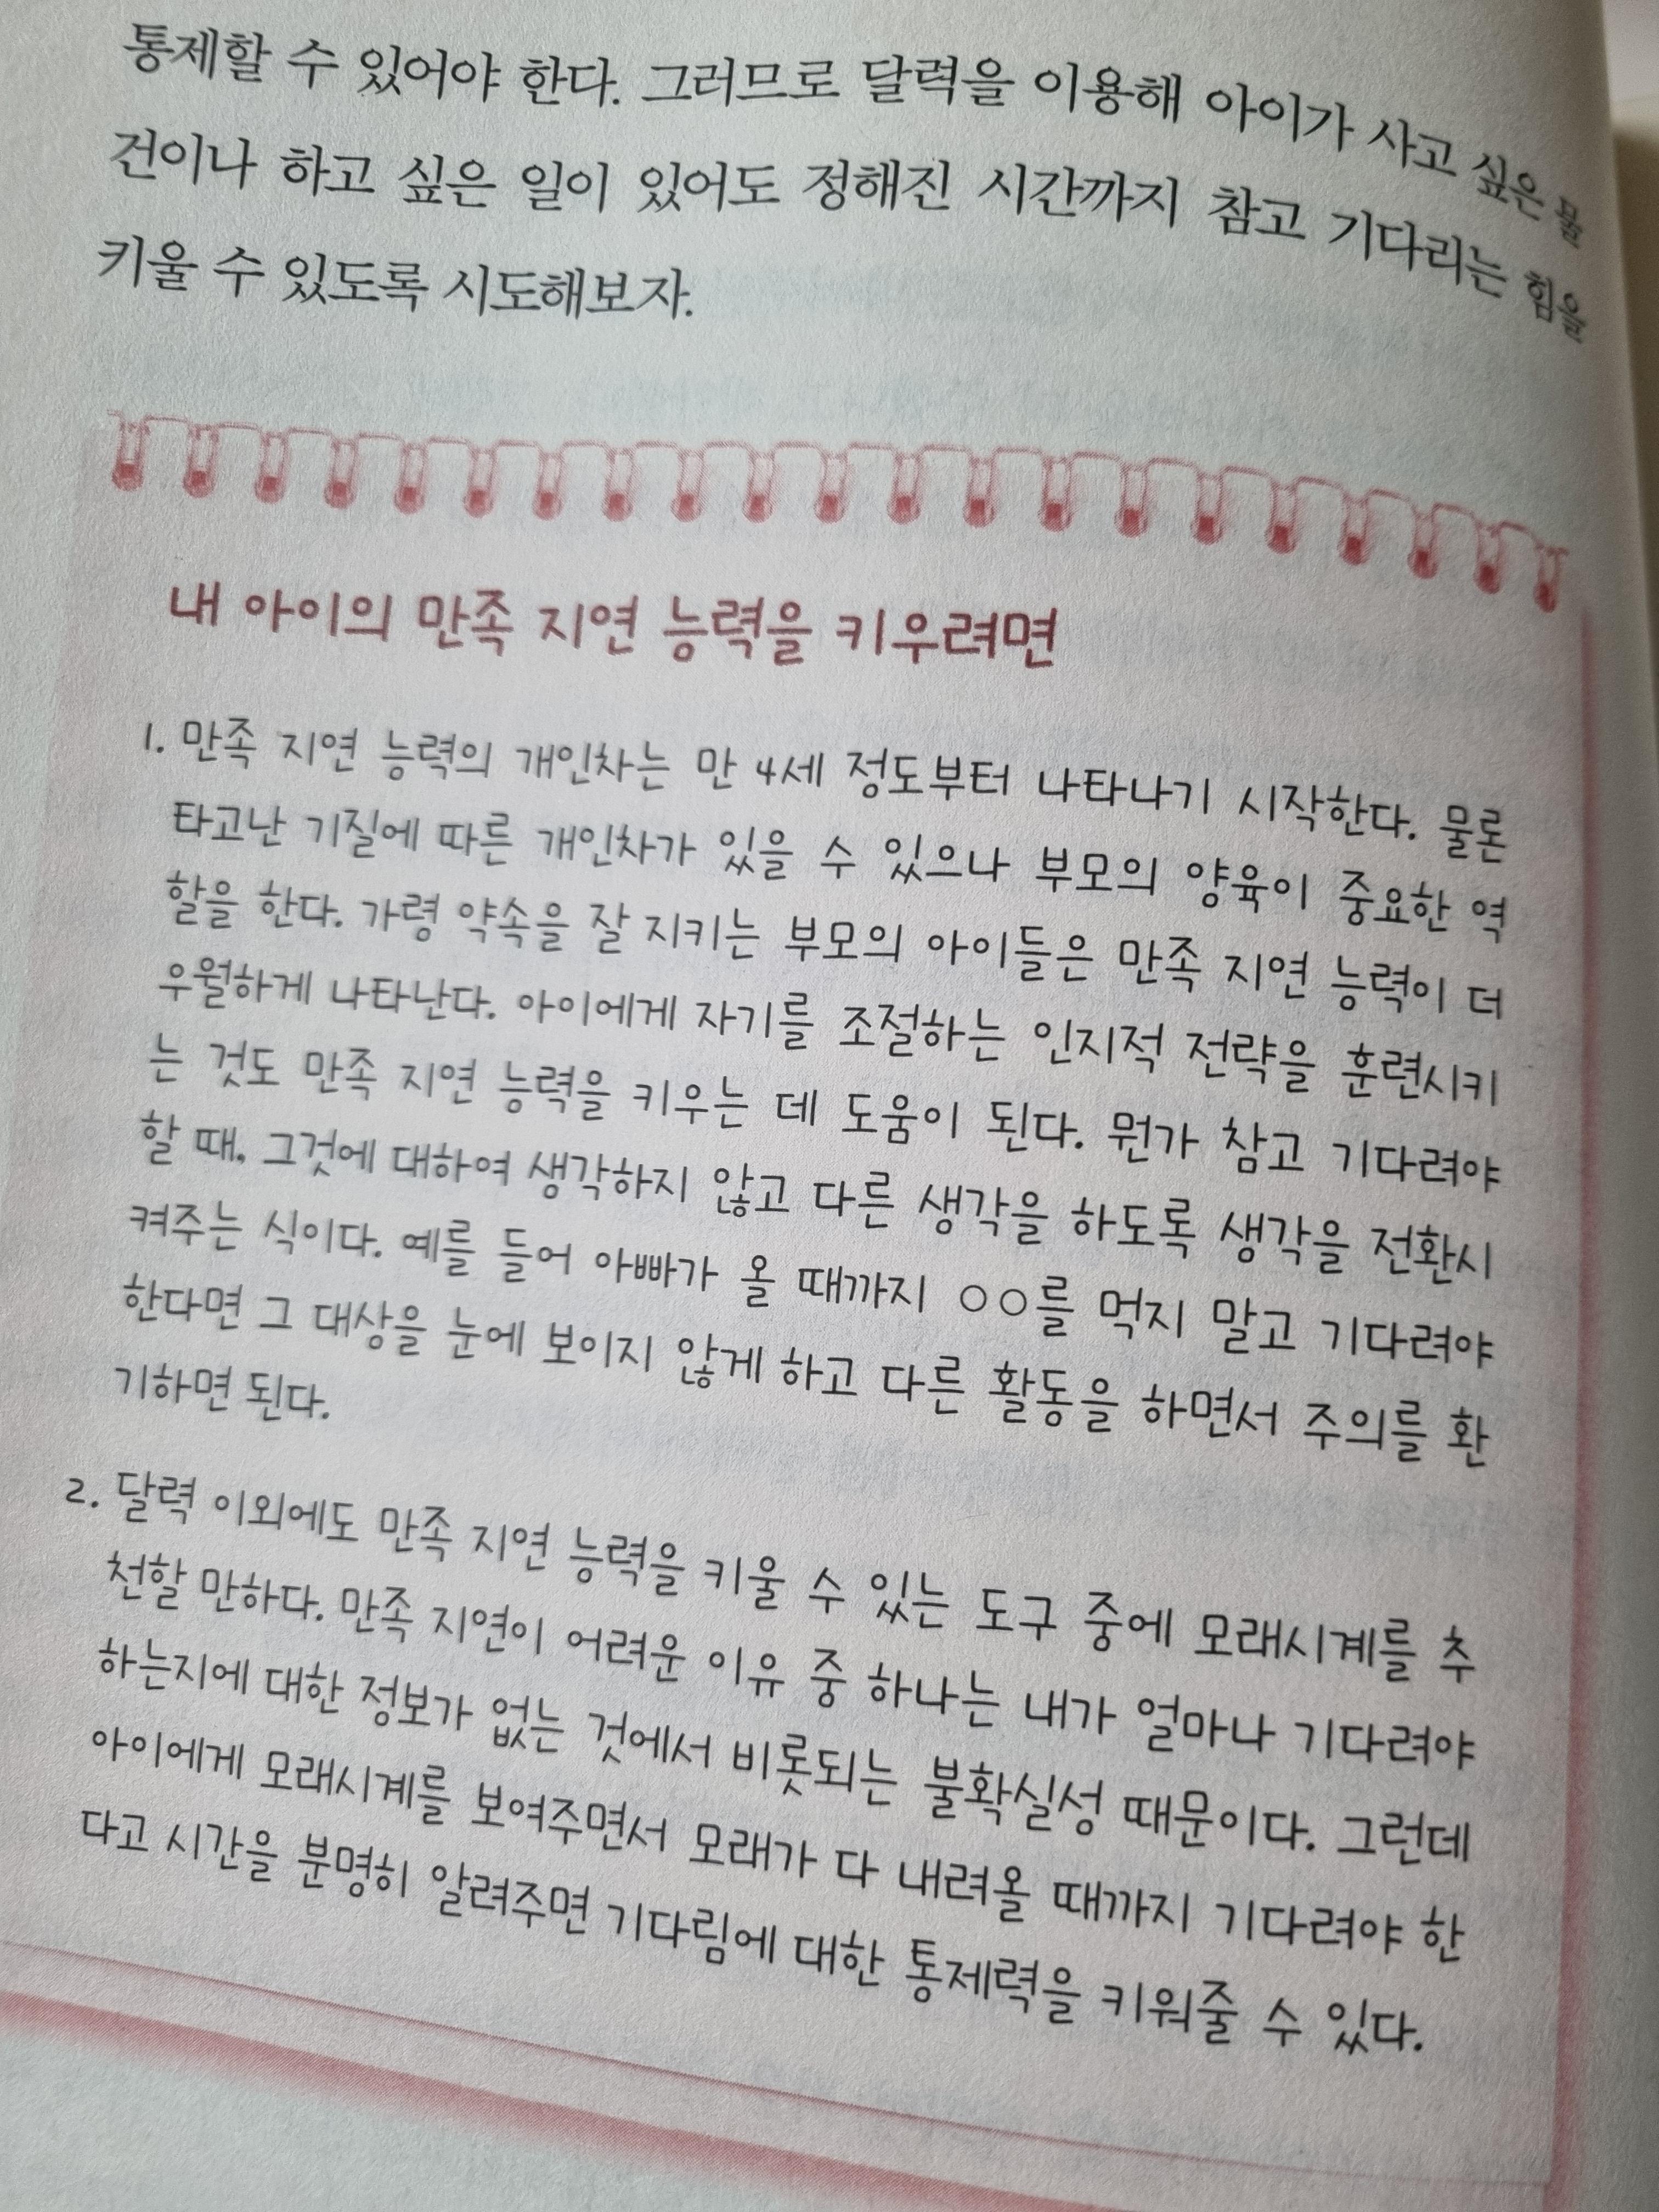 통제할 수 있어야 한다. 그러므로 달력을 이용해 아이가 사고 싶은 물
건이나 하고 싶은 일이 있어도 정해진 시간까지 참고 기다리는 힘을
키울 수 있도록 시도해보자.
내 아이의 만족 지연 능력을 키우려면
1. 만족 지연 능력의 개인차는 만 4세 정도부터 나타나기 시작한다. 물론
타고난 기질에 따른 개인차가 있을 수 있으나 부모의 양육이 중요한 역
할을 한다. 가령 약속을 잘 지키는 부모의 아이들은 만족 지연 능력이 더
우월하게 나타난다. 아이에게 자기를 조절하는 인지적 전략을 훈련시키
는 것도 만족 지연 능력을 키우는 데 도움이 된다. 뭔가 참고 기다려야
할 때, 그것에 대하여 생각하지 않고 다른 생각을 하도록 생각을 전환시
켜주는 식이다. 예를 들어 아빠가 올 때까지 ○○를 먹지 말고 기다려야
한다면 그 대상을 눈에 보이지 않게 하고 다른 활동을 하면서 주의를 환
기하면 된다.
2. 달력 이외에도 만족 지연 능력을 키울 수 있는 도구 중에 모래시계를 추
천할 만하다. 만족 지연이 어려운 이유 중 하나는 내가 얼마나 기다려야
하는지에 대한 정보가 없는 것에서 비롯되는 불확실성 때문이다. 그런데
아이에게 모래시계를 보여주면서 모래가 다 내려올 때까지 기다려야 한
다고 시간을 분명히 알려주면 기다림에 대한 통제력을 키워줄 수 있다.